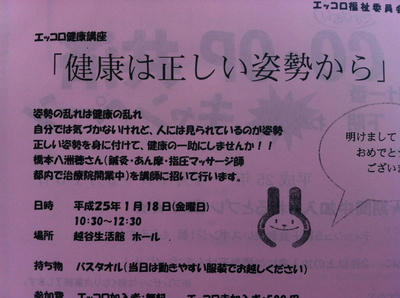 エッコロ福祉委員会
エッコロ健康講座
「健康は正しい姿勢から」
姿勢の乱れは健康の乱れ
自分では気づかないけれど、人には見られているのが姿勢
正しい姿勢を身に付けて、健康の一助にしませんか!!
橋本八洲穂さん(鍼灸・あん摩・指圧マッサージ師
都内で治療院開業中)を講師に招いて行います。
明けまして
おめでとう
ござい
日時 平成25年1月18日(金曜日)
10:30~12:30
場所 越谷生活館 ホール
持ち物 バスタオル(当日は動きやすい服装でお越しください)
参加費 エッコロ加入者:無料